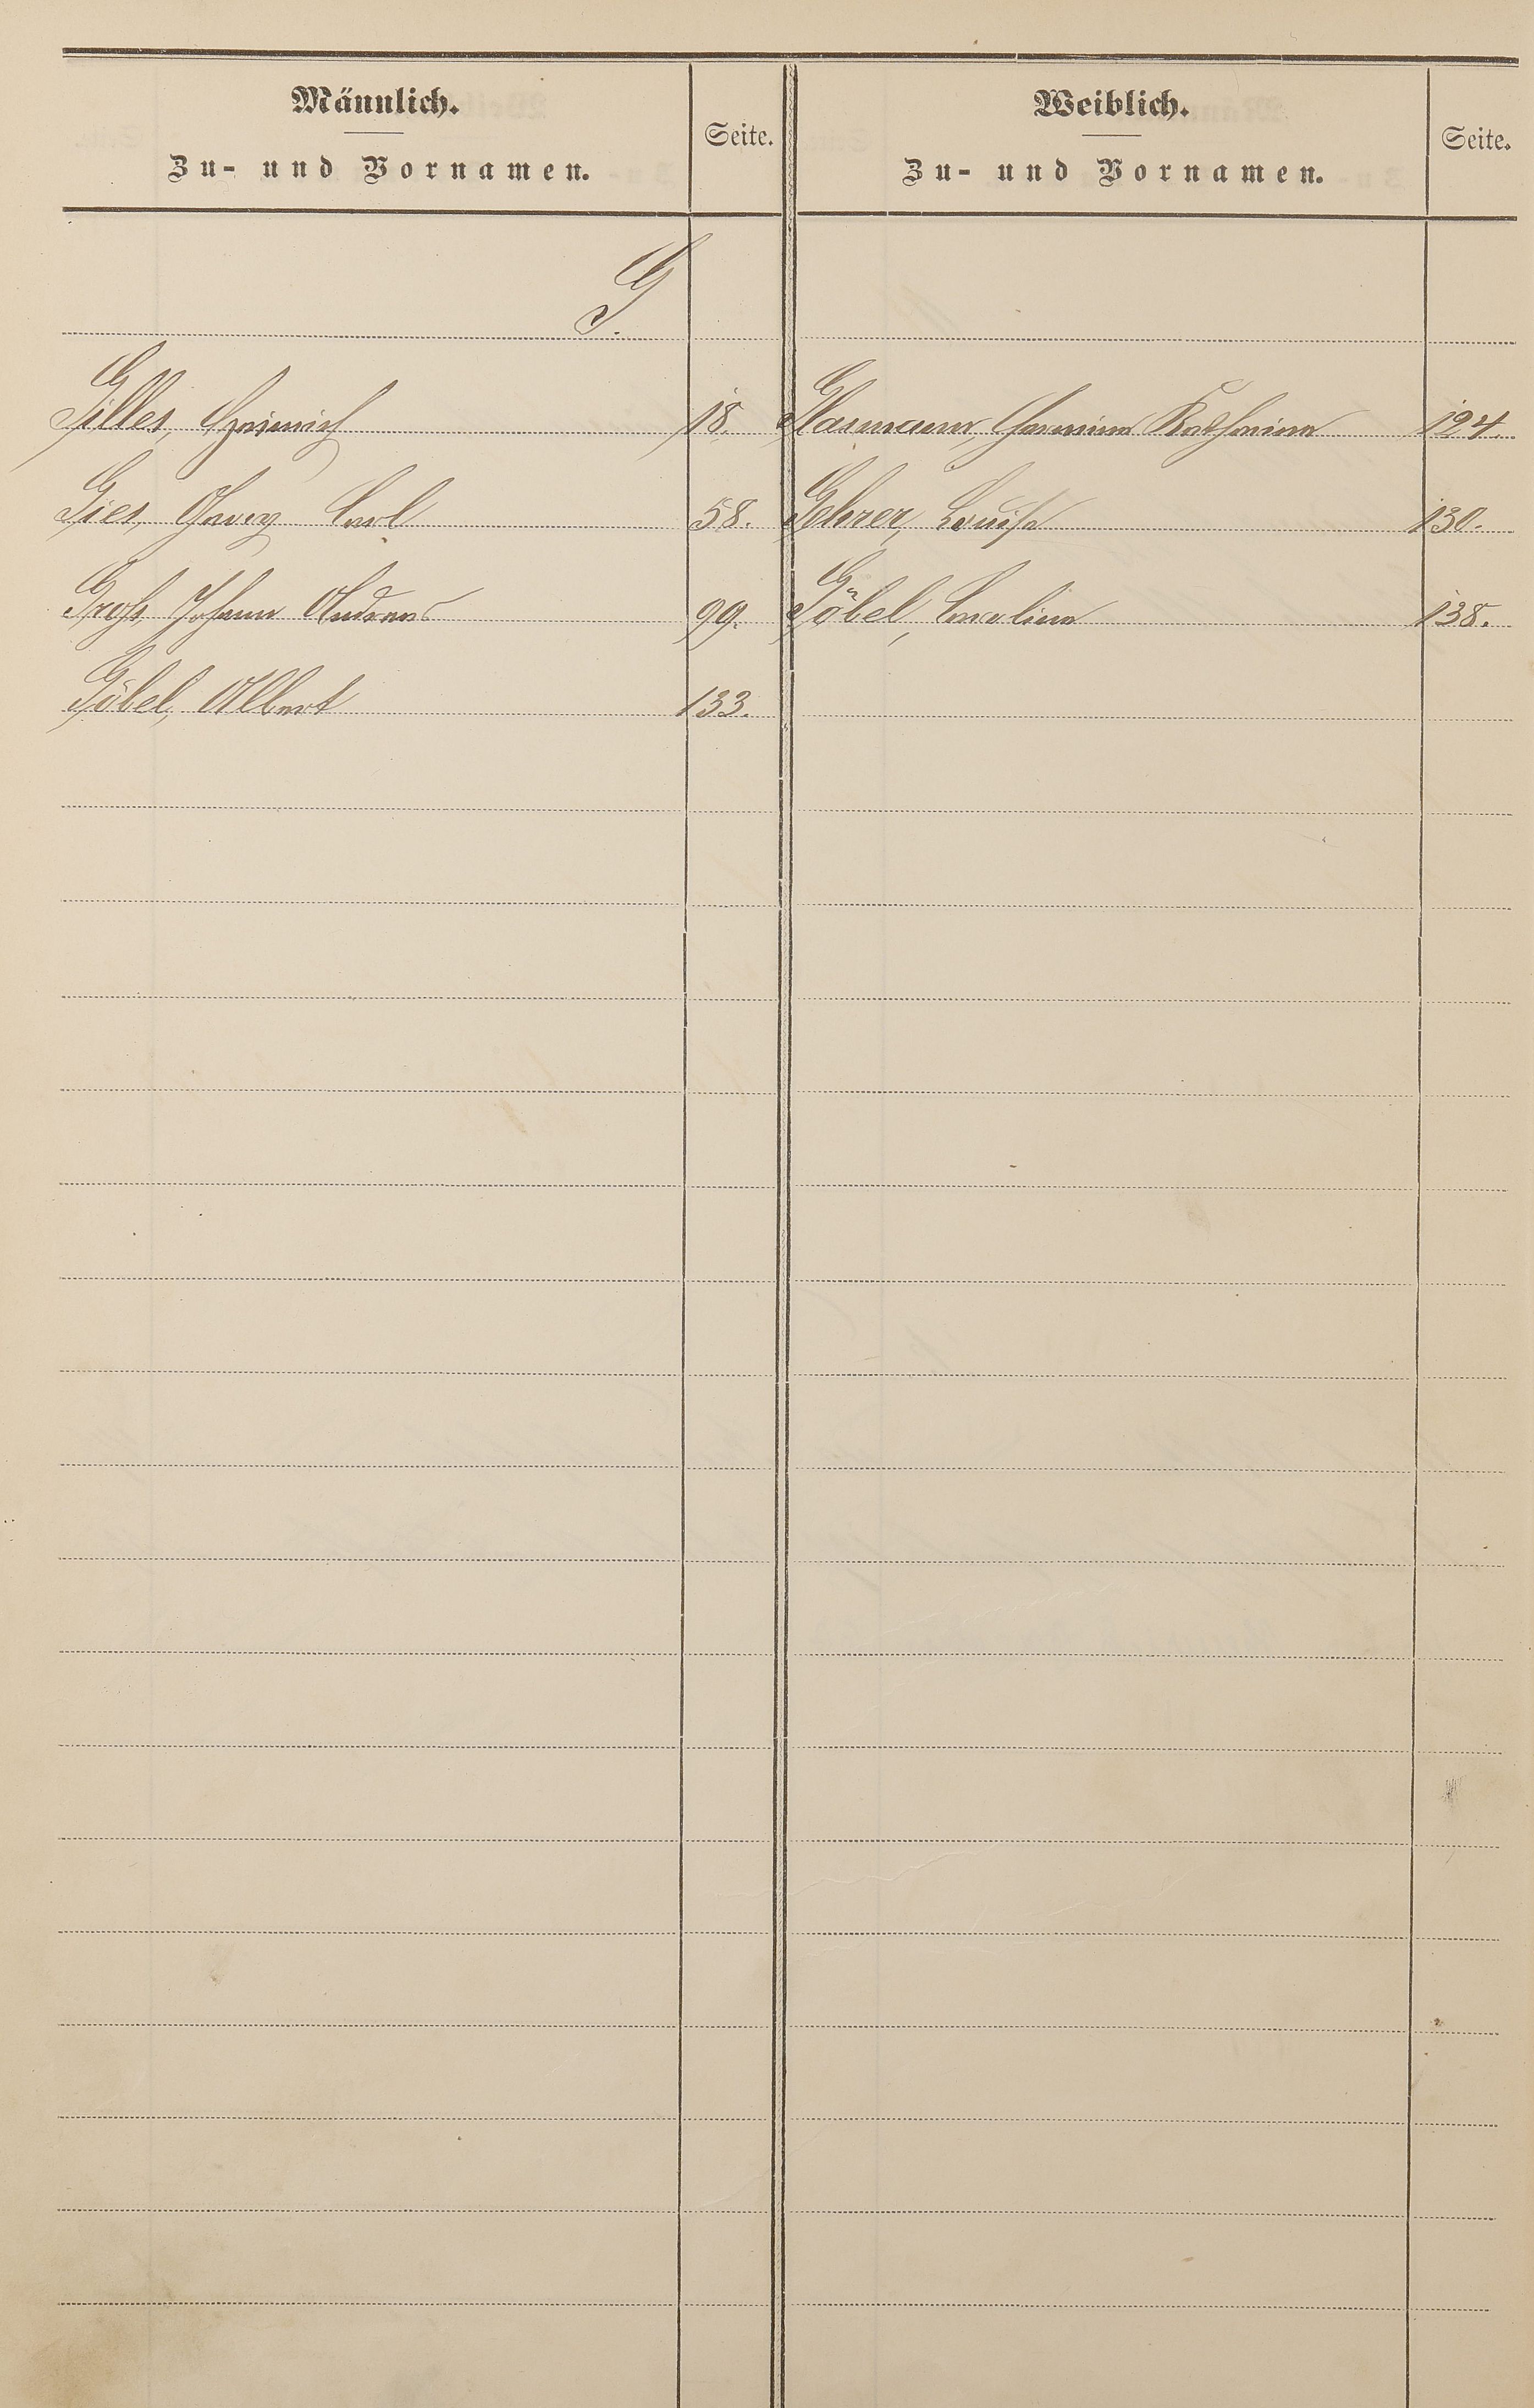 Männlich.
Zu- und Vornamen.
Seite.
Weiblich.
Zu- und Vornamen.
Seite.
G.
Gilles, Heinrich 18. Glasmann, Hermine Katharine 124.
Gies, Georg Carl 58. Gehrer, Louise 130.
Groß, Johann Andreas 99. Göbel, Caroline 138.
Göbel, Albert 133.